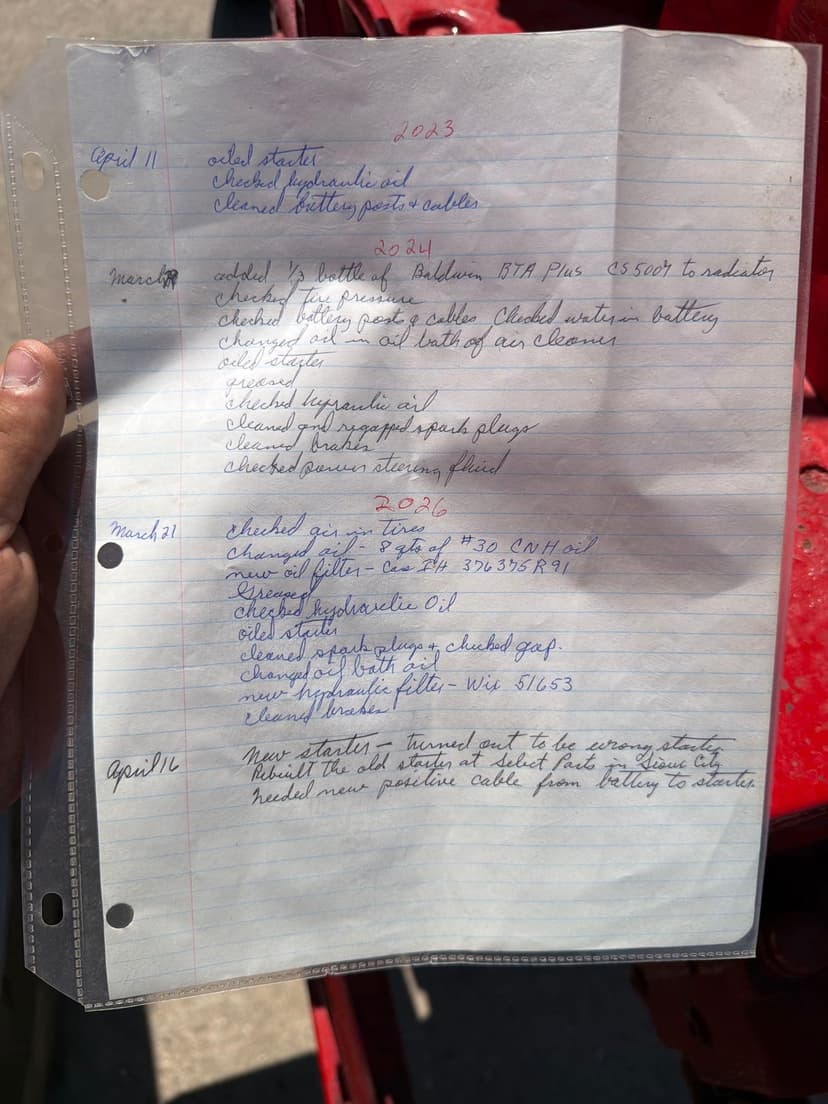 2023
April 11 oiled starter
checked hydraulic oil
cleaned battery posts + cables
2024
March added 1/3 bottle of Baldwin BTA Plus CS5007 to radiator
checked tire pressure
checked battery posts & cables Checked water in battery
changed oil in oil bath of air cleaner
oiled starter
greased
checked hydraulic oil
cleaned and regapped spark plugs
cleaned brakes
checked power steering fluid
2026
March 21 checked air in tires
changed oil - 8 qts of #30 CNH oil
new oil filter - Case IH 376375R91
Greased
checked hydraulic Oil
oiled starter
cleaned spark plugs + checked gap.
changed oil bath oil
new hydraulic filter - Wix 51653
cleaned brakes
April 16 New starter - turned out to be wrong starter
Rebuilt the old starter at Select Parts in Sioux City
Needed new positive cable from battery to starter.